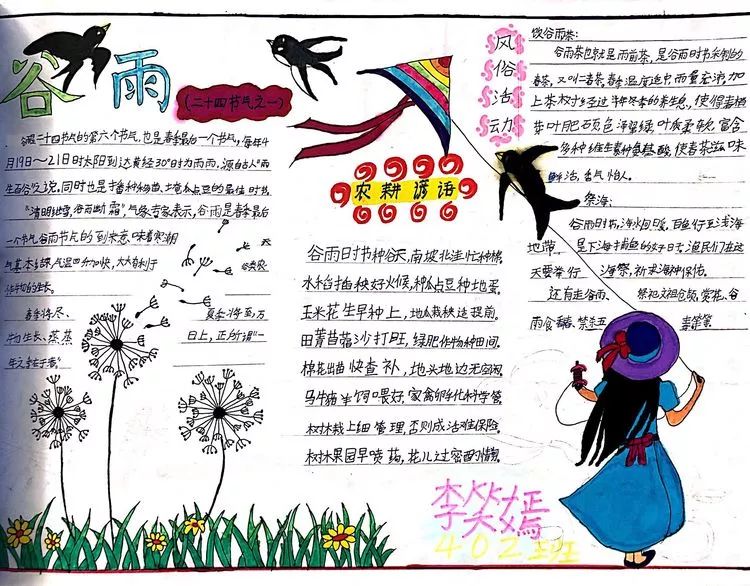 谷雨
(二十四节气之一)
谷雨二十四节气的第六个节气,也是春季最后一个节气,每年4
月19日~21日时太阳到达黄经30°时为雨雨,源自古人"雨
生百谷"之说,同时也是播种移苗、埯瓜点豆的最佳时节
"清明断雪,谷雨断霜",气象专家表示,谷雨是春季最后
一个节气,谷雨节气的到来意味着寒潮
气基本结束,气温回升加快,大大有利于谷类农
作物的生长。
春季将尽、夏季将至万
物生长、蒸蒸日上,正所谓"一
年之季在于春"
风俗活动
农耕谚语
谷雨日书种谷天,南坡北洼忙种棉,
水稻插秧好火候,种瓜点豆种地蛋,
玉米花生早种上,地瓜栽秧造提前,
田菁苜蓿沙打旺,绿肥作物种田间,
棉花出苗快查补,地头地边无空闲,
马牛猪羊饲喂好,家禽孵化科学管,
树林栽上细管理,否则成活难保险,
树林果园早喷药,
饮谷雨茶:
谷雨茶也就是雨前茶,是谷雨时节采制的
春茶,又叫二春茶,春季温度适中雨量充沛,加
上茶树经过半年冬季的养生息,使得春梢
芽叶肥硕色泽翠绿,叶质柔软,富含
多种维生素和氨基酸,使春茶滋味
鲜活,香气怡人。
祭海:
谷雨时节,海水回暖,百鱼行至浅海
地带,是下海捕鱼的好日子,渔民们在这
天要举行海祭,祈求海神保佑。
还有走谷雨、祭祀文祖仓颉,赏花、谷
雨食香椿、禁杀五
402班